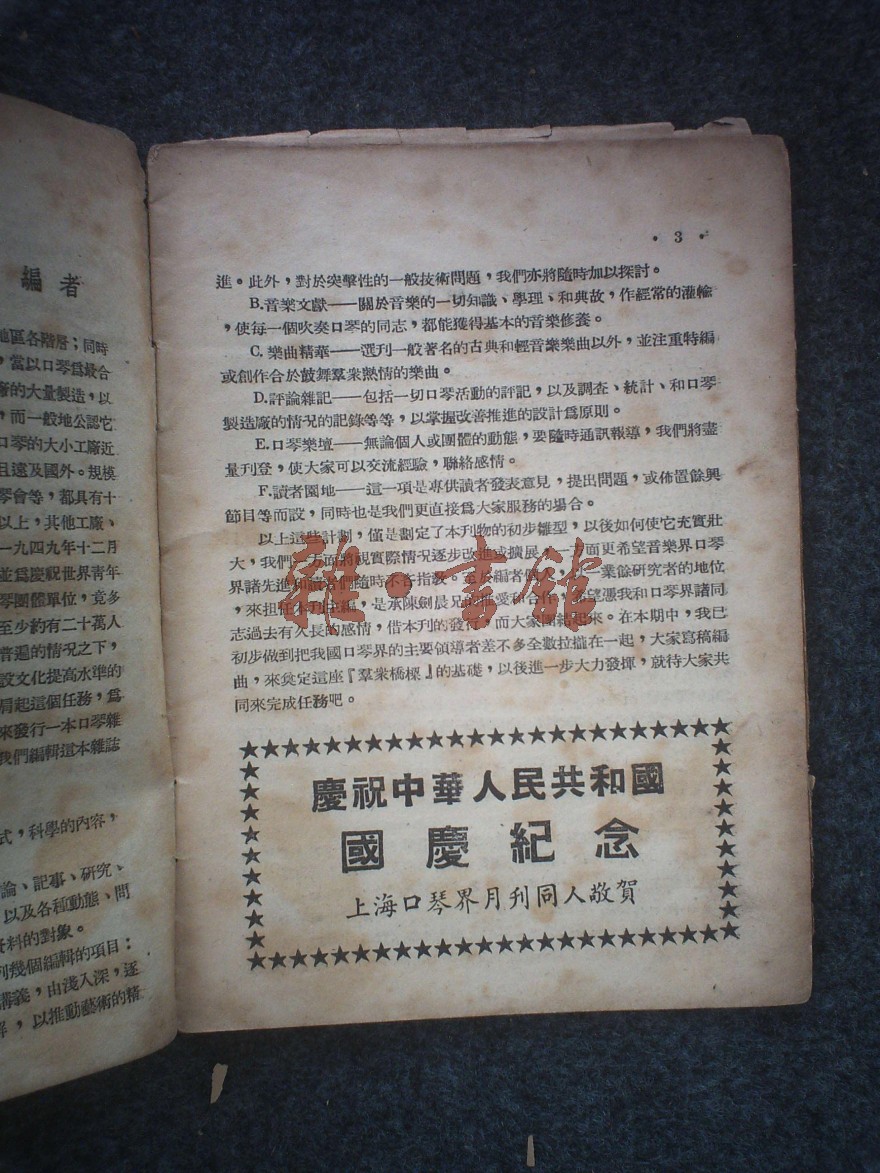 編者
地區各階層；同時
，當以口琴爲最合
廠的大量製造，以
，而一般地公認它
口琴的大小工廠近
且遠及國外。規模
琴會等，都具有十
以上，其他工廠、
一九四九年十二月
並爲慶祝世界青年
琴團體單位，竟多
至少約有二十萬人
普遍的情況之下，
設文化提高水準的
肩起這個任務，爲
來發行一本口琴雜
我們編輯這本雜誌
式，科學的內容，
論、記事、研究、
以及各種動態、問
資料的對象。
列幾個編輯的項目：
講義，由淺入深，逐
解，以推動藝術的精
·3·
進。此外，對於突擊性的一般技術問題，我們亦將隨時加以探討。
B.音樂文獻——關於音樂的一切知識、學理、和典故，作經常的灌輸
，使每一個吹奏口琴的同志，都能獲得基本的音樂修養。
C.樂曲精華——選刊一般著名的古典和輕音樂樂曲以外，並注重特編
或創作合於鼓舞羣衆熱情的樂曲。
D.評論雜記——包括一切口琴活動的評記，以及調查、統計、和口琴
製造廠的情況的記錄等等，以掌握改善推進的設計爲原則。
E.口琴樂壇——無論個人或團體的動態，要隨時通訊報導，我們將盡
量刊登，使大家可以交流經驗，聯絡感情。
F.讀者園地——這一項是專供讀者發表意見，提出問題，或佈置餘興
節目等而設，同時也是我們更直接爲大家服務的場合。
以上這些計劃，僅是劃定了本刊物的初步雛型，以後如何使它充實壯
大，我們一方面將視實際情況逐步改進或擴展，一方面更希望音樂界口琴
界諸先進和讀者們隨時不吝指敎。至於編者個人，業餘研究者的地位
，來担任本刊主編，是承陳劍晨兄的推愛和合作，希望憑我和口琴界諸同
志過去有久長的感情，借本刊的發行，而大家團結起來。在本期中，我已
初步做到把我國口琴界的主要領導者差不多全數拉攏在一起，大家寫稿編
曲，來奠定這座『羣衆橋樑』的基礎，以後進一步大力發揮，就待大家共
同來完成任務吧。
慶祝中華人民共和國
國慶紀念
上海口琴界月刊同人敬賀
雜·書館